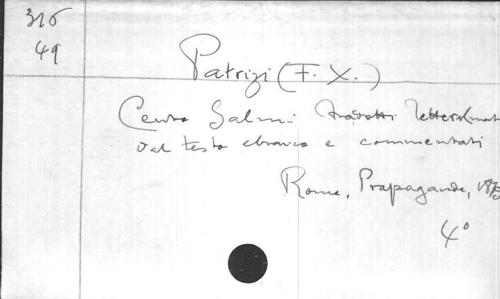 316
49
Patrizi (F. X.)
Cento Salmi tradotti letteralmat
dal testo ebraico e commentati
Rome, Propagande, 1875
4°